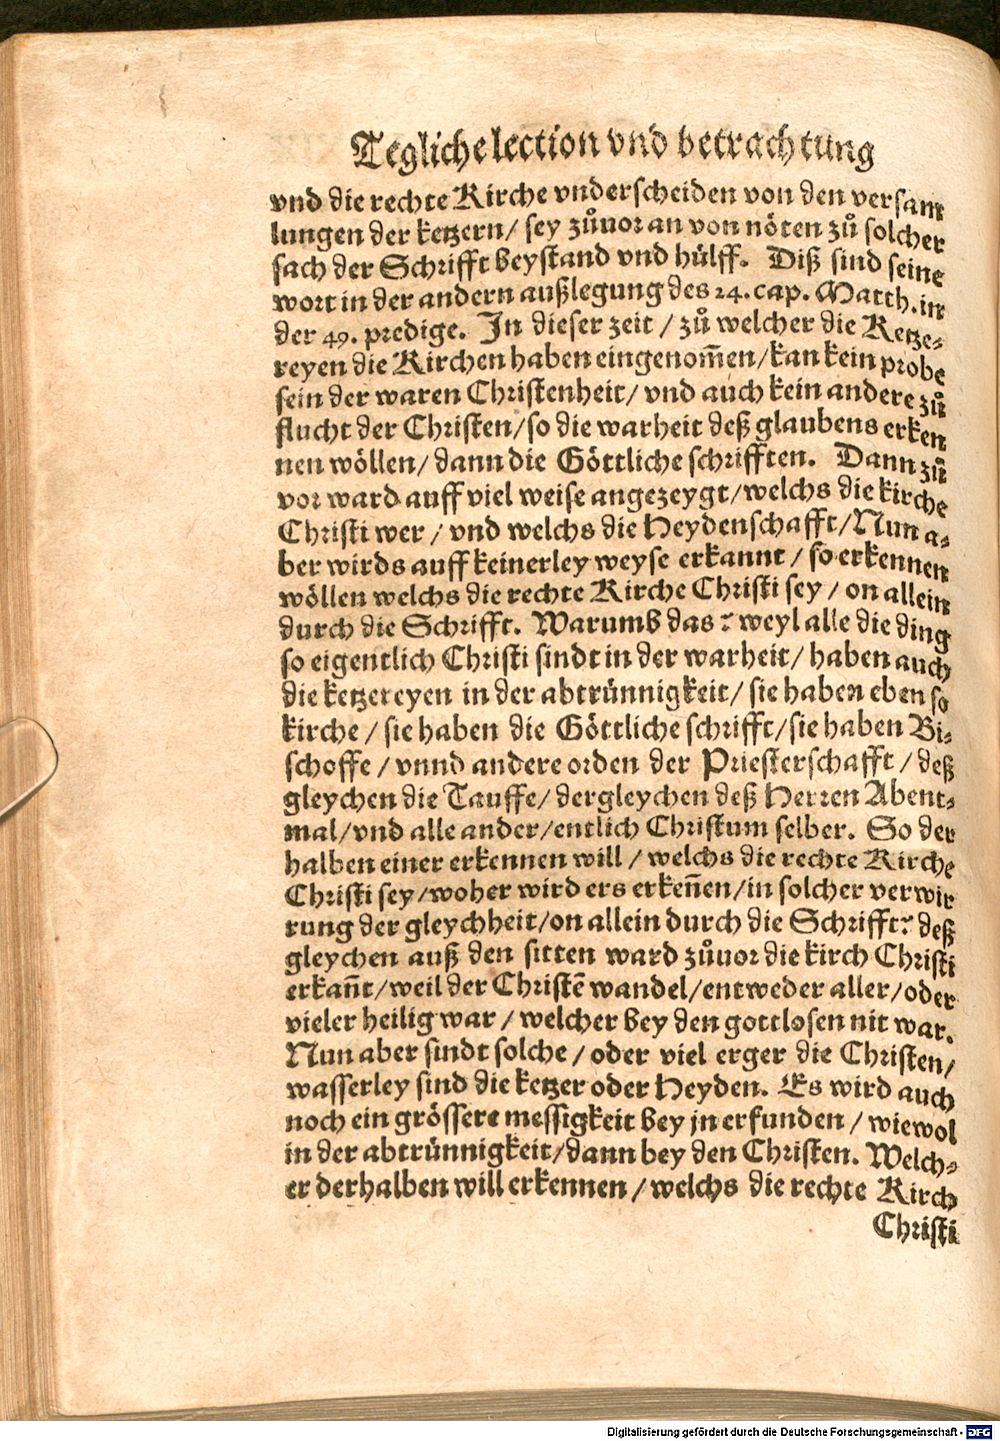 Tegliche lection vnd betrachtung
vnd die rechte Kirche vnderscheiden von den versam
lungen der ketzern/ sey zůuor an von nöten zů solcher
sach der Schrifft beystand vnd hülff. Diß sind seine
wort in der andern außlegung des 24. cap. Matth. in
der 49. predige. In dieser zeit / zů welcher die Ketze-
reyen die Kirchen haben eingenom̃en/kan kein probe
sein der waren Christenheit/ vnd auch kein andere zů
flucht der Christen/so die warheit deß glaubens erken
nen wöllen/ dann die Göttliche schrifften. Dann zů
vor ward auff viel weise angezeygt/welchs die kirche
Christi wer / vnd welchs die Heydenschafft/Nun a-
ber wirds auff keinerley weyse erkannt / so erkennen
wöllen welchs die rechte Kirche Christi sey / on allein
durch die Schrifft. Warumb das? weyl alle die ding
so eigentlich Christi sindt in der warheit/ haben auch
die ketzereyen in der abtrünnigkeit/ sie haben eben so
kirche / sie haben die Göttliche schrifft/sie haben Bi-
schoffe / vnnd andere orden der Priesterschafft / deß
gleychen die Tauffe/ dergleychen deß Herren Abent-
mal/vnd alle ander/entlich Christum selber. So der
halben einer erkennen will / welchs die rechte Kirche
Christi sey/woher wird ers erkeñen/in solcher verwir
rung der gleychheit/on allein durch die Schrifft? deß
gleychen auß den sitten ward zůuor die kirch Christi
erkañt/weil der Christẽ wandel/entweder aller/oder
vieler heilig war / welcher bey den gottlosen nit war.
Nun aber sindt solche / oder viel erger die Christen/
wasserley sind die ketzer oder Heyden. Es wird auch
noch ein grössere messigkeit bey jn erfunden / wiewol
in der abtrünnigkeit/dann bey den Christen. Welch-
er derhalben will erkennen / welchs die rechte Kirch
Christi
Digitalisierung gefördert durch die Deutsche Forschungsgemeinschaft - DFG